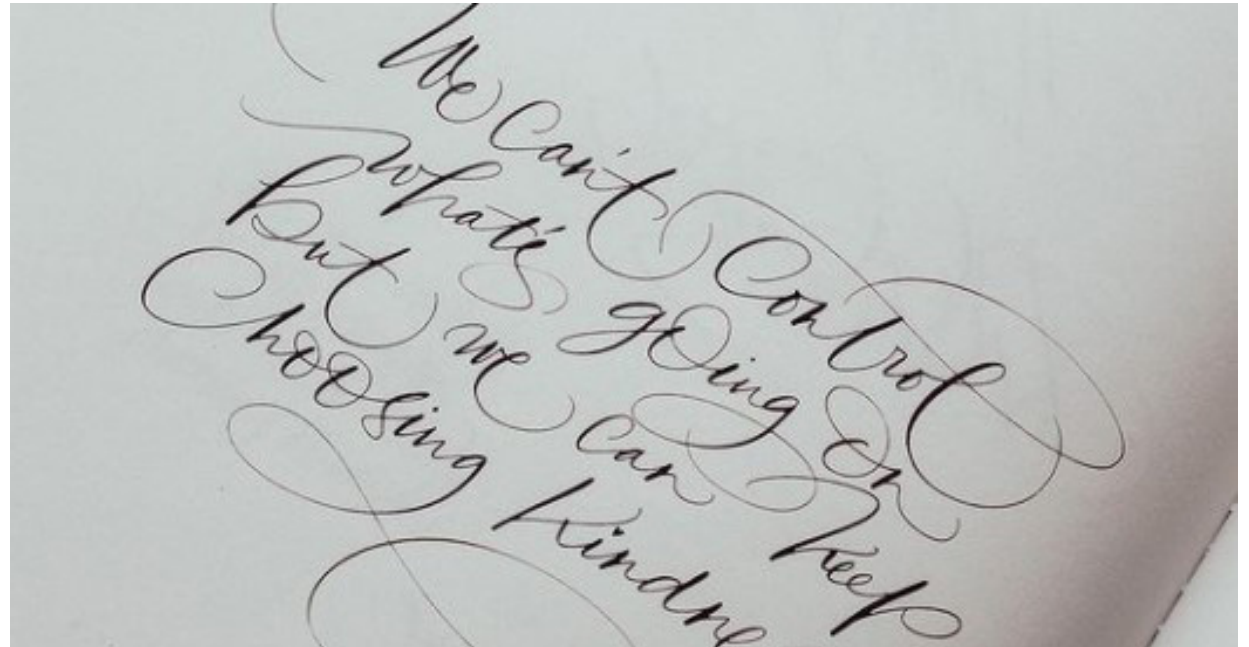 We Can't Control
what's going on
But we can keep
Choosing Kindne